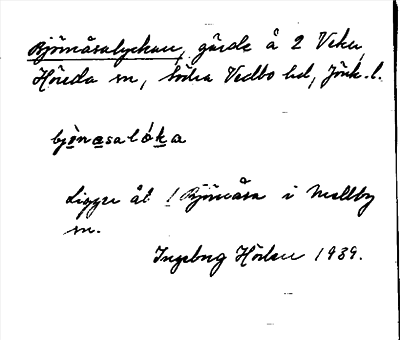 Björnåsalyckan, gärde å 2 Veku,
Höreda sn, Södra Vedbo hd, Jönk. l.
bjònasalóka
Ligger åt ! Björnåsa i Mellby
sn.
Ingeborg Hörlen 1939.